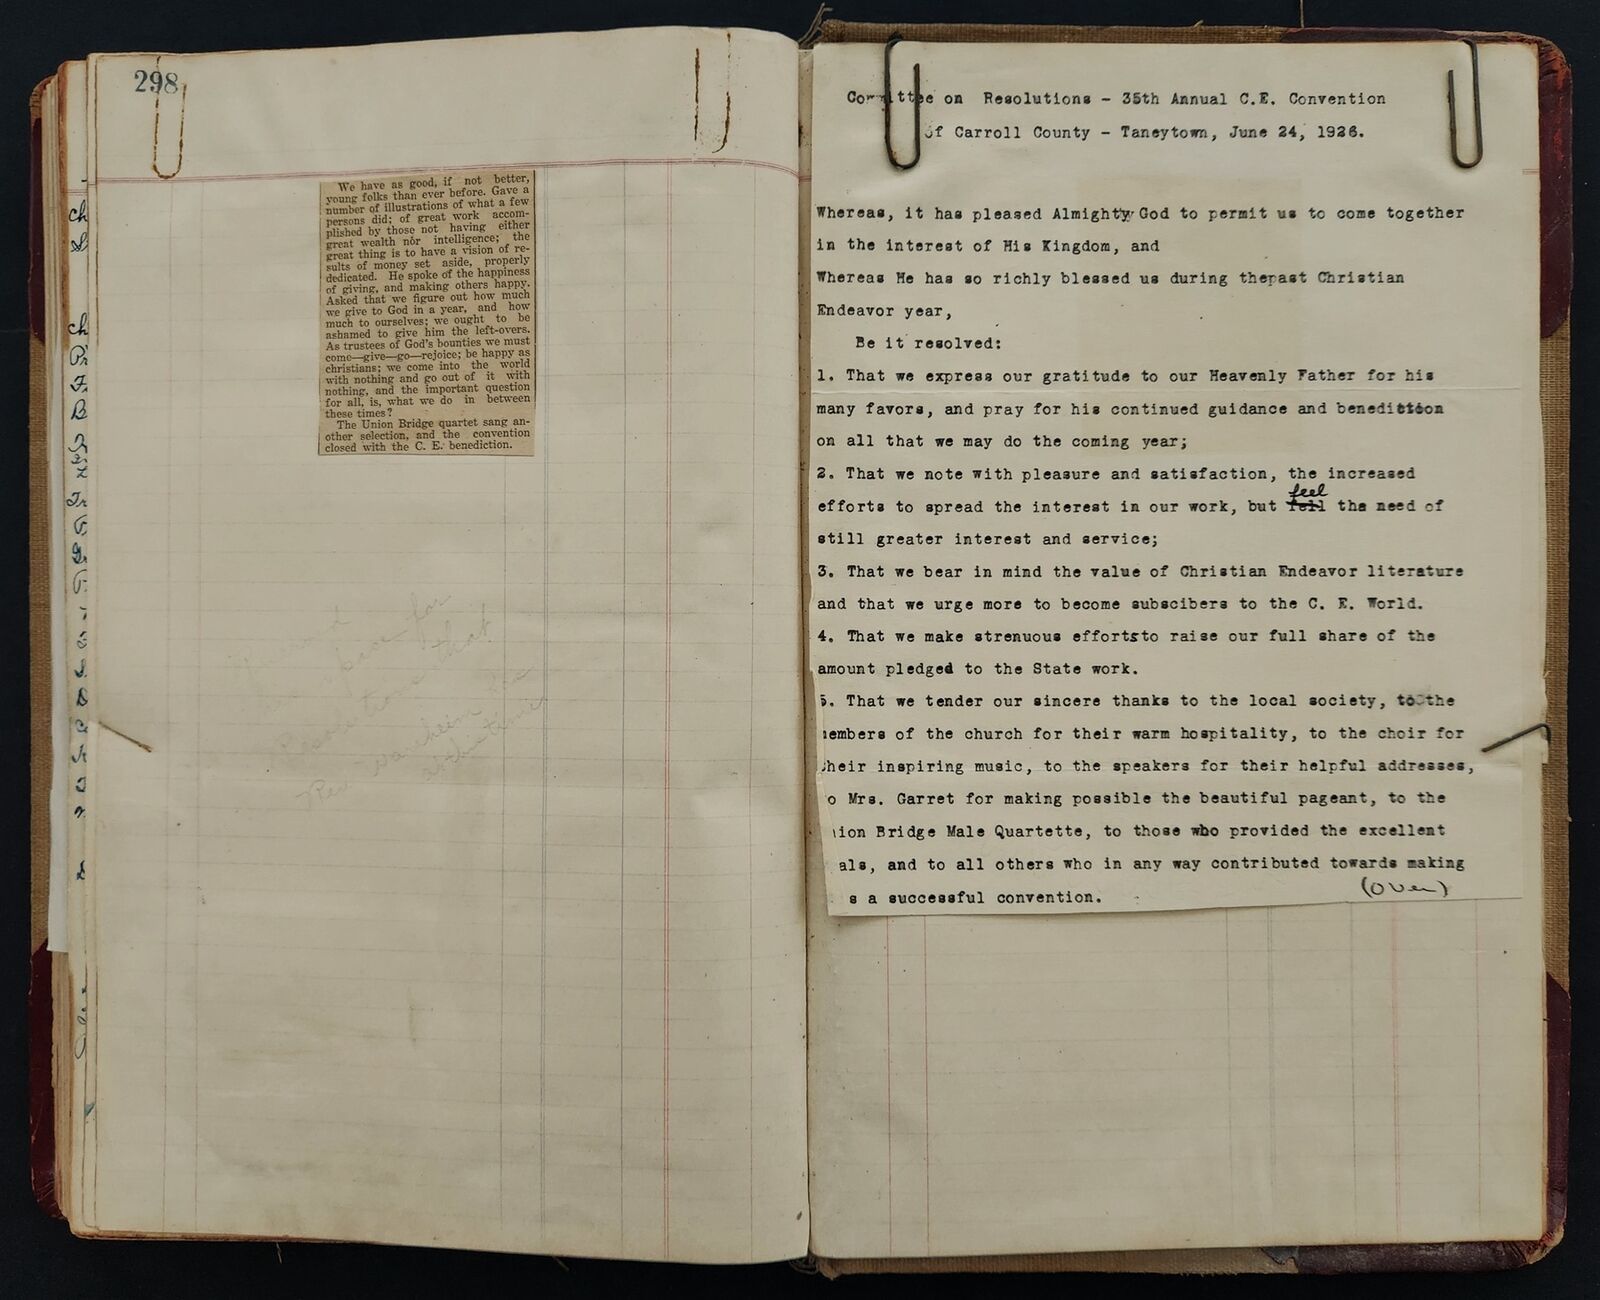 298
We have as good, if not better,
young folks than ever before. Gave a
number of illustrations of what a few
persons did; of great work accom-
plished by those not having either
great wealth nor intelligence; the
great thing is to have a vision of re-
sults of money set aside, properly
dedicated. He spoke of the happiness
of giving, and making others happy.
Asked that we figure out how much
we give to God in a year, and how
much to ourselves; we ought to be
ashamed to give him the left-overs.
As trustees of God's bounties we must
come—give—go—rejoice; be happy as
christians; we come into the world
with nothing and go out of it with
nothing, and the important question
for all, is, what we do in between
these times?
The Union Bridge quartet sang an-
other selection, and the convention
closed with the C. E. benediction.
for
that
Rev
at this time
Committee on Resolutions - 35th Annual C.E. Convention
of Carroll County - Taneytown, June 24, 1926.
Whereas, it has pleased Almighty God to permit us to come together
in the interest of His Kingdom, and
Whereas He has so richly blessed us during thepast Christian
Endeavor year,
Be it resolved:
1. That we express our gratitude to our Heavenly Father for his
many favors, and pray for his continued guidance and benediction
on all that we may do the coming year;
2. That we note with pleasure and satisfaction, the increased
feel
efforts to spread the interest in our work, but fell the need of
still greater interest and service;
3. That we bear in mind the value of Christian Endeavor literature
and that we urge more to become subscibers to the C. E. World.
4. That we make strenuous effortsto raise our full share of the
amount pledged to the State work.
5. That we tender our sincere thanks to the local society, to the
embers of the church for their warm hospitality, to the choir for
heir inspiring music, to the speakers for their helpful addresses,
o Mrs. Garret for making possible the beautiful pageant, to the
ion Bridge Male Quartette, to those who provided the excellent
als, and to all others who in any way contributed towards making
s a successful convention.
(over)